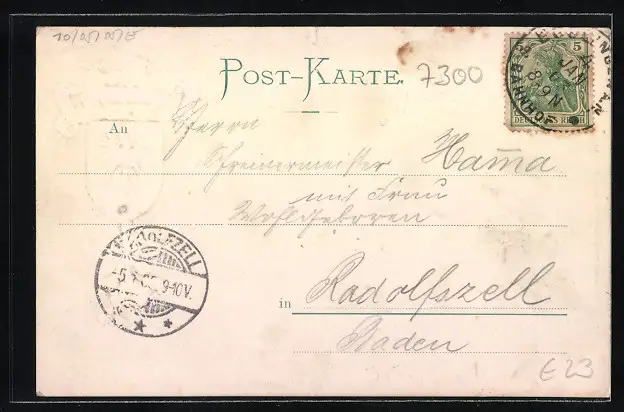 POST-KARTE.
7300
5
DEUTSCHES REICH
4 JAN
8-9N
An
Herrn
Schreinermeister Hamma
mit Frau
Wohlgeboren
RADOLFZELL
9-10V.
in
Radolfszell
Baden
€23